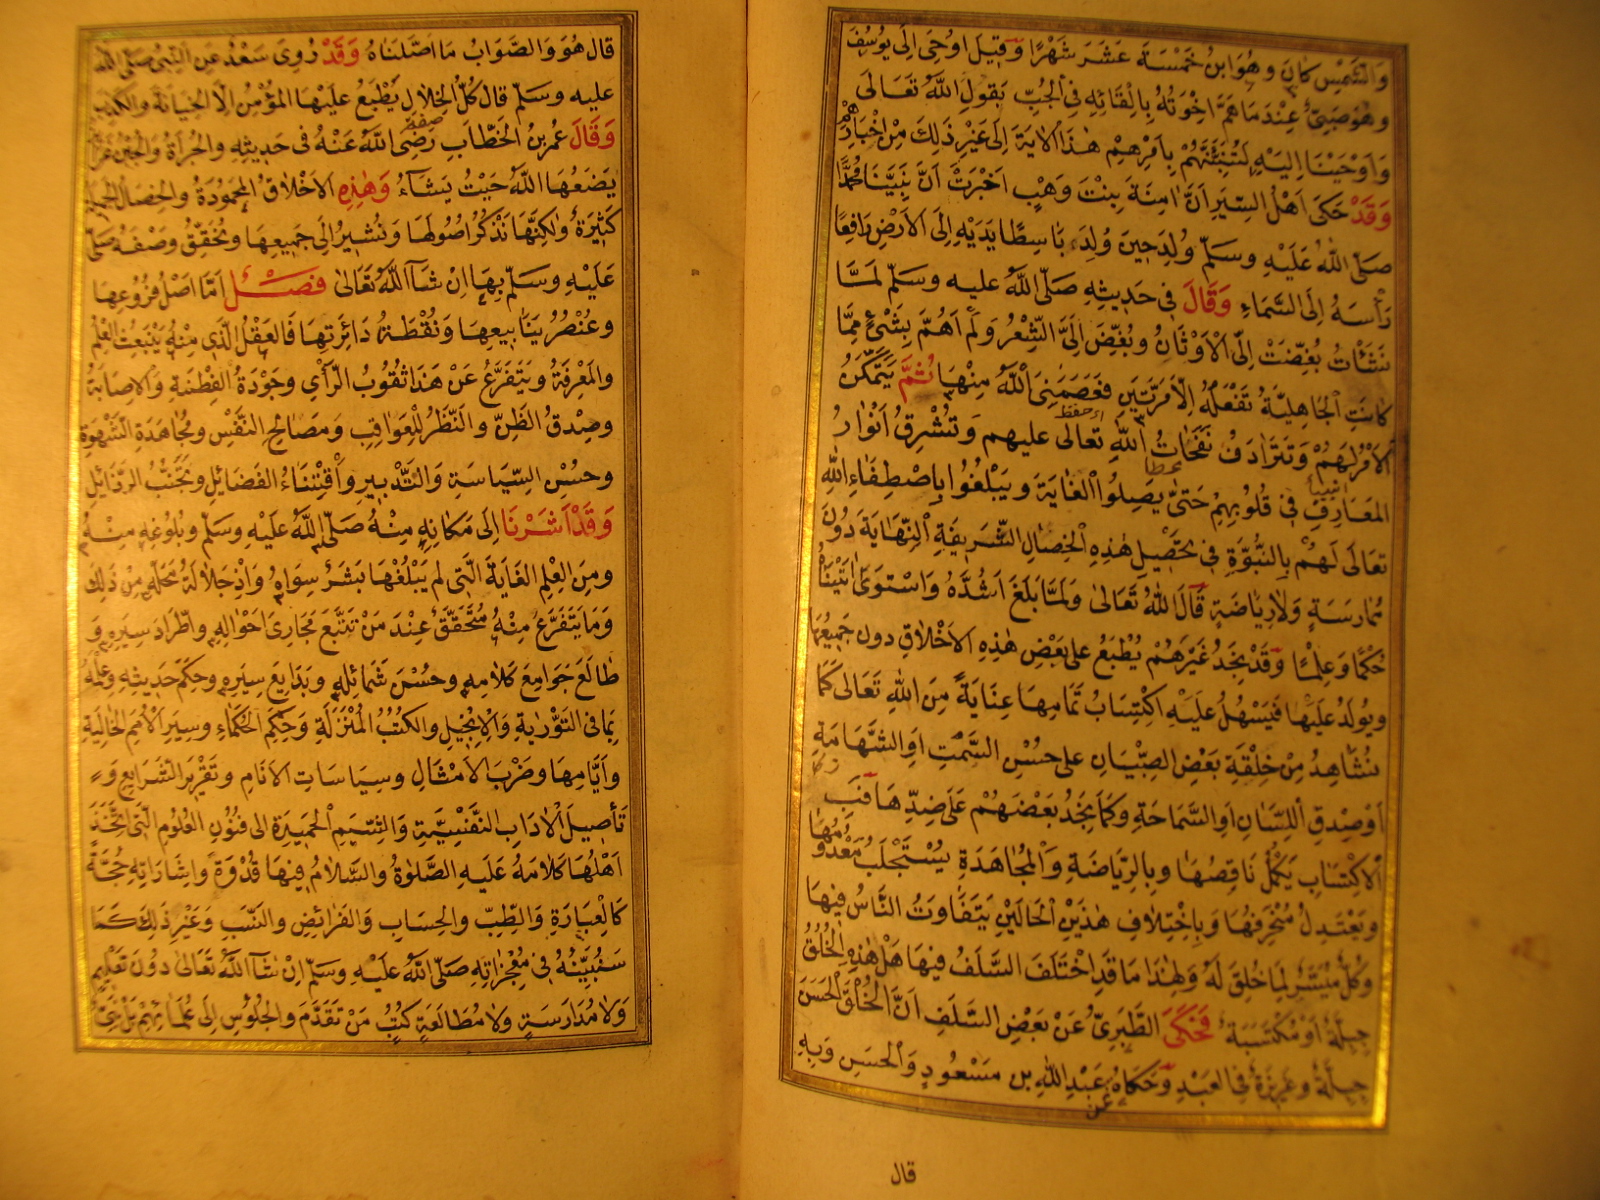 وَالشَّمْسِ كَانَ وَهُوَ ابنُ خَمْسَةَ عَشَرَ شَهْرًا وَقيلَ اُوحِىَ اِلَى يُوسُفَ
وَهُوَ صَبِىٌّ عِنْدَمَا هَمَّ اِخْوَتُهُ بِاِلْقَائِهِ فِى الْجُبِّ بِقَولِ اللّٰهِ تَعَالَى
وَاَوْحَيْنَا اِلَيْهِ لَتُنَبِّئَنَّهُمْ بِاَمْرِهِمْ هٰذَا الْاٰيَةَ اِلَى غَيْرِ ذَلِكَ مِنْ اَخْبَارِهِمْ
وَقَدْ حَكَى اَهْلُ السِّيَرِ اَنَّ اٰمِنَةَ بِنْتَ وَهْبٍ اَخْبَرَتْ اَنَّ نَبِيَّنَا مُحَمَّدًا
صَلَّى اللّٰهُ عَلَيْهِ وسَلَّمَ وُلِدَ حِينَ وُلِدَ بَاسِطًا يَدَيْهِ اِلَى الْاَرْضِ رَافِعًا
رَأْسَهُ اِلَى السَّمَاءِ وَقَالَ فِى حَدِيثِهِ صَلَّى اللّٰهُ عليه وسَلَّمَ لَمَّا
نَشَأْتُ بُغِّضَتْ اِلَىَّ الْاَوْثَانُ وبُغِّضَ اِلَىَّ الشِّعْرُ وَلَمْ اَهُمَّ بِشَىْءٍ مِمَّا
كَانَتِ الْجَاهِلِيَّةُ تَفْعَلُهُ اِلَّا مَرَّتَيْنِ فَعَصَمَنِىَ اللّٰهُ مِنْهَا ثُمَّ يَتَمَكَّنُ
الْاَمْرُ لَهُمْ وَتَتَرَادَفُ نَفَحَاتُ اللّٰهِ تعالى عليهم وَتُشْرِقُ اَنْوَارُ
المَعَارِفِ فى قُلُوبِهِمْ حَتَّى يَصِلُوا الْغَايَةَ ويَبْلُغُوا بِاصْطِفَاءِ اللّٰهِ
تعالى لَهُمْ بِالنُّبُوَّةِ فِى تَحْصِيلِ هٰذِهِ الْخِصَالِ الشَّرِيفَةِ النِّهَايَةَ دُونَ
مُمَارَسَةٍ وَلَا رِيَاضَةٍ قَالَ اللّٰهُ تَعَالىٰ وَلَمَّا بَلَغَ اَشُدَّهُ وَاسْتَوَىٰ اٰتَيْنَاهُ
حُكْمًا وَعِلْمًا وَقَدْ نَجِدُ غَيْرَهُمْ يُطْبَعُ على بَعْضِ هٰذِهِ الاَخْلاقِ دون جَمِيعِهَا
ويُولَدُ عَلَيْهَا فَيَسْهُلُ عَلَيْهِ اكْتِسَابُ تَمَامِهَا عِنَايَةً مِنَ اللّٰهِ تَعَالَى كَمَا
نُشَاهِدُ مِنْ خِلْقَةِ بَعْضِ الصِّبْيَانِ على حُسْنِ السَّمْتِ اَوِ الشَّهَامَةِ
اَوْ صِدْقِ اللِّسَانِ اَوِ السَّمَاحَةِ وكَمَا نَجِدُ بَعْضَهُمْ عَلَى ضِدِّهَا فَبِ
الْاِكْتِسَابِ يَكْمُلُ نَاقِصُهَا وبِالرِّيَاضَةِ وَالْمُجَاهَدَةِ يُسْتَجْلَبُ مَعْدُومُهَا
ويَعْتَدِلُ مُنْحَرِفُهَا وَبِاخْتِلَافِ هٰذَيْنِ الْحَالَيْنِ يَتَفَاوَتُ النَّاسُ فِيهَا
وكُلٌّ مُيَسَّرٌ لِمَا خُلِقَ لَهُ وَلِهٰذَا مَا قَدِ اخْتَلَفَ السَّلَفُ فِيهَا هَلْ هٰذِهِ الْخُلُقُ
جِبِلَّةٌ اَوْ مُكْتَسَبَةٌ فَحَكَى الطَّبَرِىُّ عَنْ بَعْضِ السَّلَفِ اَنَّ الْخُلُقَ الْحَسَنَ
جِبِلَّةٌ وغَرِيزَةٌ فى العَبْدِ وَحَكَاهُ عن عَبْدِ اللّٰهِ بن مَسْعُودٍ وَالْحَسَنِ وَبِهِ
قال
قال هُوَ وَالصَّوَابُ مَا اَصَّلْنَاهُ وَقَدْ رُوِىَ سَعْدٌ عَنِ النَّبِىِّ صَلَّى اللّٰهُ
عليه وسَلَّمَ قالَ كُلُّ الْخِلَالِ يُطْبَعُ عَلَيْهَا المُؤْمِنُ اِلَّا الْخِيَانَةَ والْكَذِبَ
وَقَالَ عُمَرُ بنُ الْخَطَّابِ رَضِىَ اللّٰهُ عَنْهُ فى حَدِيثِهِ والْجُرْأَةُ وَالْجُبْنُ غَرَائِزُ
يَضَعُهَا اللّٰهُ حَيْثُ يَشَاءُ وَهٰذِهِ الاَخْلَاقُ الْمَحْمُودَةُ والْخِصَالُ الجميلة
كَثِيرَةٌ وَلٰكِنَّهَا نَذْكُرُ اُصُولَهَا وَنُشِيرُ اِلَى جَمِيعِهَا ونُحَقِّقُ وَصْفَهُ صَلَّى
عَلَيْهِ وسَلَّمَ بِهَا اِنْ شَاءَ اللّٰهُ تَعَالىٰ فصل اَمَّا اَصْلُ فُرُوعِهَا
وعُنْصُرُ يَنَابِيعِهَا وَنُقْطَةُ دَائِرَتِهَا فَالعَقْلُ الَّذِى مِنْهُ يَنْبَعِثُ العِلْمُ
والمَعْرِفَةُ وَيَتَفَرَّعُ عَنْ هَذَا ثُقُوبُ الرَّأْىِ وجَوْدَةُ الفِطْنَةِ وَالاِصَابَةُ
وصِدْقُ الظَّنِّ والنَّظَرُ لِلْعَوَاقِبِ وَمَصَالِحِ النَّفْسِ ومُجَاهَدَةِ الشَّهْوَةِ
وحُسْنِ السِّيَاسَةِ وَالتَّدْبِيرِ وَاقْتِنَاءُ الفَضَائِلِ وتَجَنُّبُ الرَّذَائِلِ
وَقَدْ اَشَرْنَا اِلَى مَكَانِهِ مِنْهُ صَلَّى اللّٰهُ عَلَيْهِ وسَلَّمَ وبُلُوغِهِ مِنْهُ
ومِنَ العِلْمِ الغَايَةَ الَّتِى لَم يَبْلُغْهَا بَشَرٌ سِوَاهُ وَاِذْ جَلَالَةُ مَحَلِّهِ مِنْ ذَلِكَ
وَمَا يَتَفَرَّعُ مِنْهُ مُتَحَقَّقٌ عِنْدَ مَنْ تَتَبَّعَ مَجَارِىَ اَحْوَالِهِ واطِّرَادَ سِيَرِهِ وَ
طَالَعَ جَوَامِعَ كَلَامِهِ وحُسْنَ شَمَائِلِهِ وبَدَايِعَ سِيَرِهِ وحِكَمَ حَدِيثِهِ وعِلْمَهُ
بِمَا فى التَّوْرٰيةِ وَالْاِنْجِيلِ والكُتُبِ المُنْزَلَةِ وَحِكَمِ الْحُكَمَاءِ وسِيَرِ الْاُمَمِ الْخَالِيَةِ
واَيَّامِهَا وضَرْبِ الْاَمْثَالِ وسِيَاسَاتِ الْاَنَامِ وتَقْرِيرِ الشَّرَايِعِ وَ
تَأْصِيلِ الْاٰدَابِ النَّفْسِيَّةِ وَالشِّيَمِ الْحَمِيدَةِ الى فُنُونِ العُلُومِ الَّتِى اتَّخَذَ
اَهْلُهَا كَلَامَهُ عَلَيهِ الصَّلٰوةُ والسَّلَامُ فِيهَا قُدْوَةً وَاِشَارَاتِهِ حُجَّةً
كَالعِبَارَةِ وَالطِّبِّ والْحِسَابِ وَالفَرَائِضِ والنَّسَبِ وَغَيْرِ ذَلِكَ كَمَا
سَنُبَيِّنُهُ فى مُعْجِزَاتِهِ صَلَّى اللّٰهُ عَلَيْهِ وسَلَّمَ اِنْ شَاءَ اللّٰهُ تَعَالىٰ دُونَ تَعْلِيمٍ
وَلَا مُدَارَسَةٍ ولَا مُطَالَعَةِ كُتُبِ مَنْ تَقَدَّمَ والْجُلُوسِ اِلَى عُلَمَائِهِمْ بَلْ نَبِىٌّ